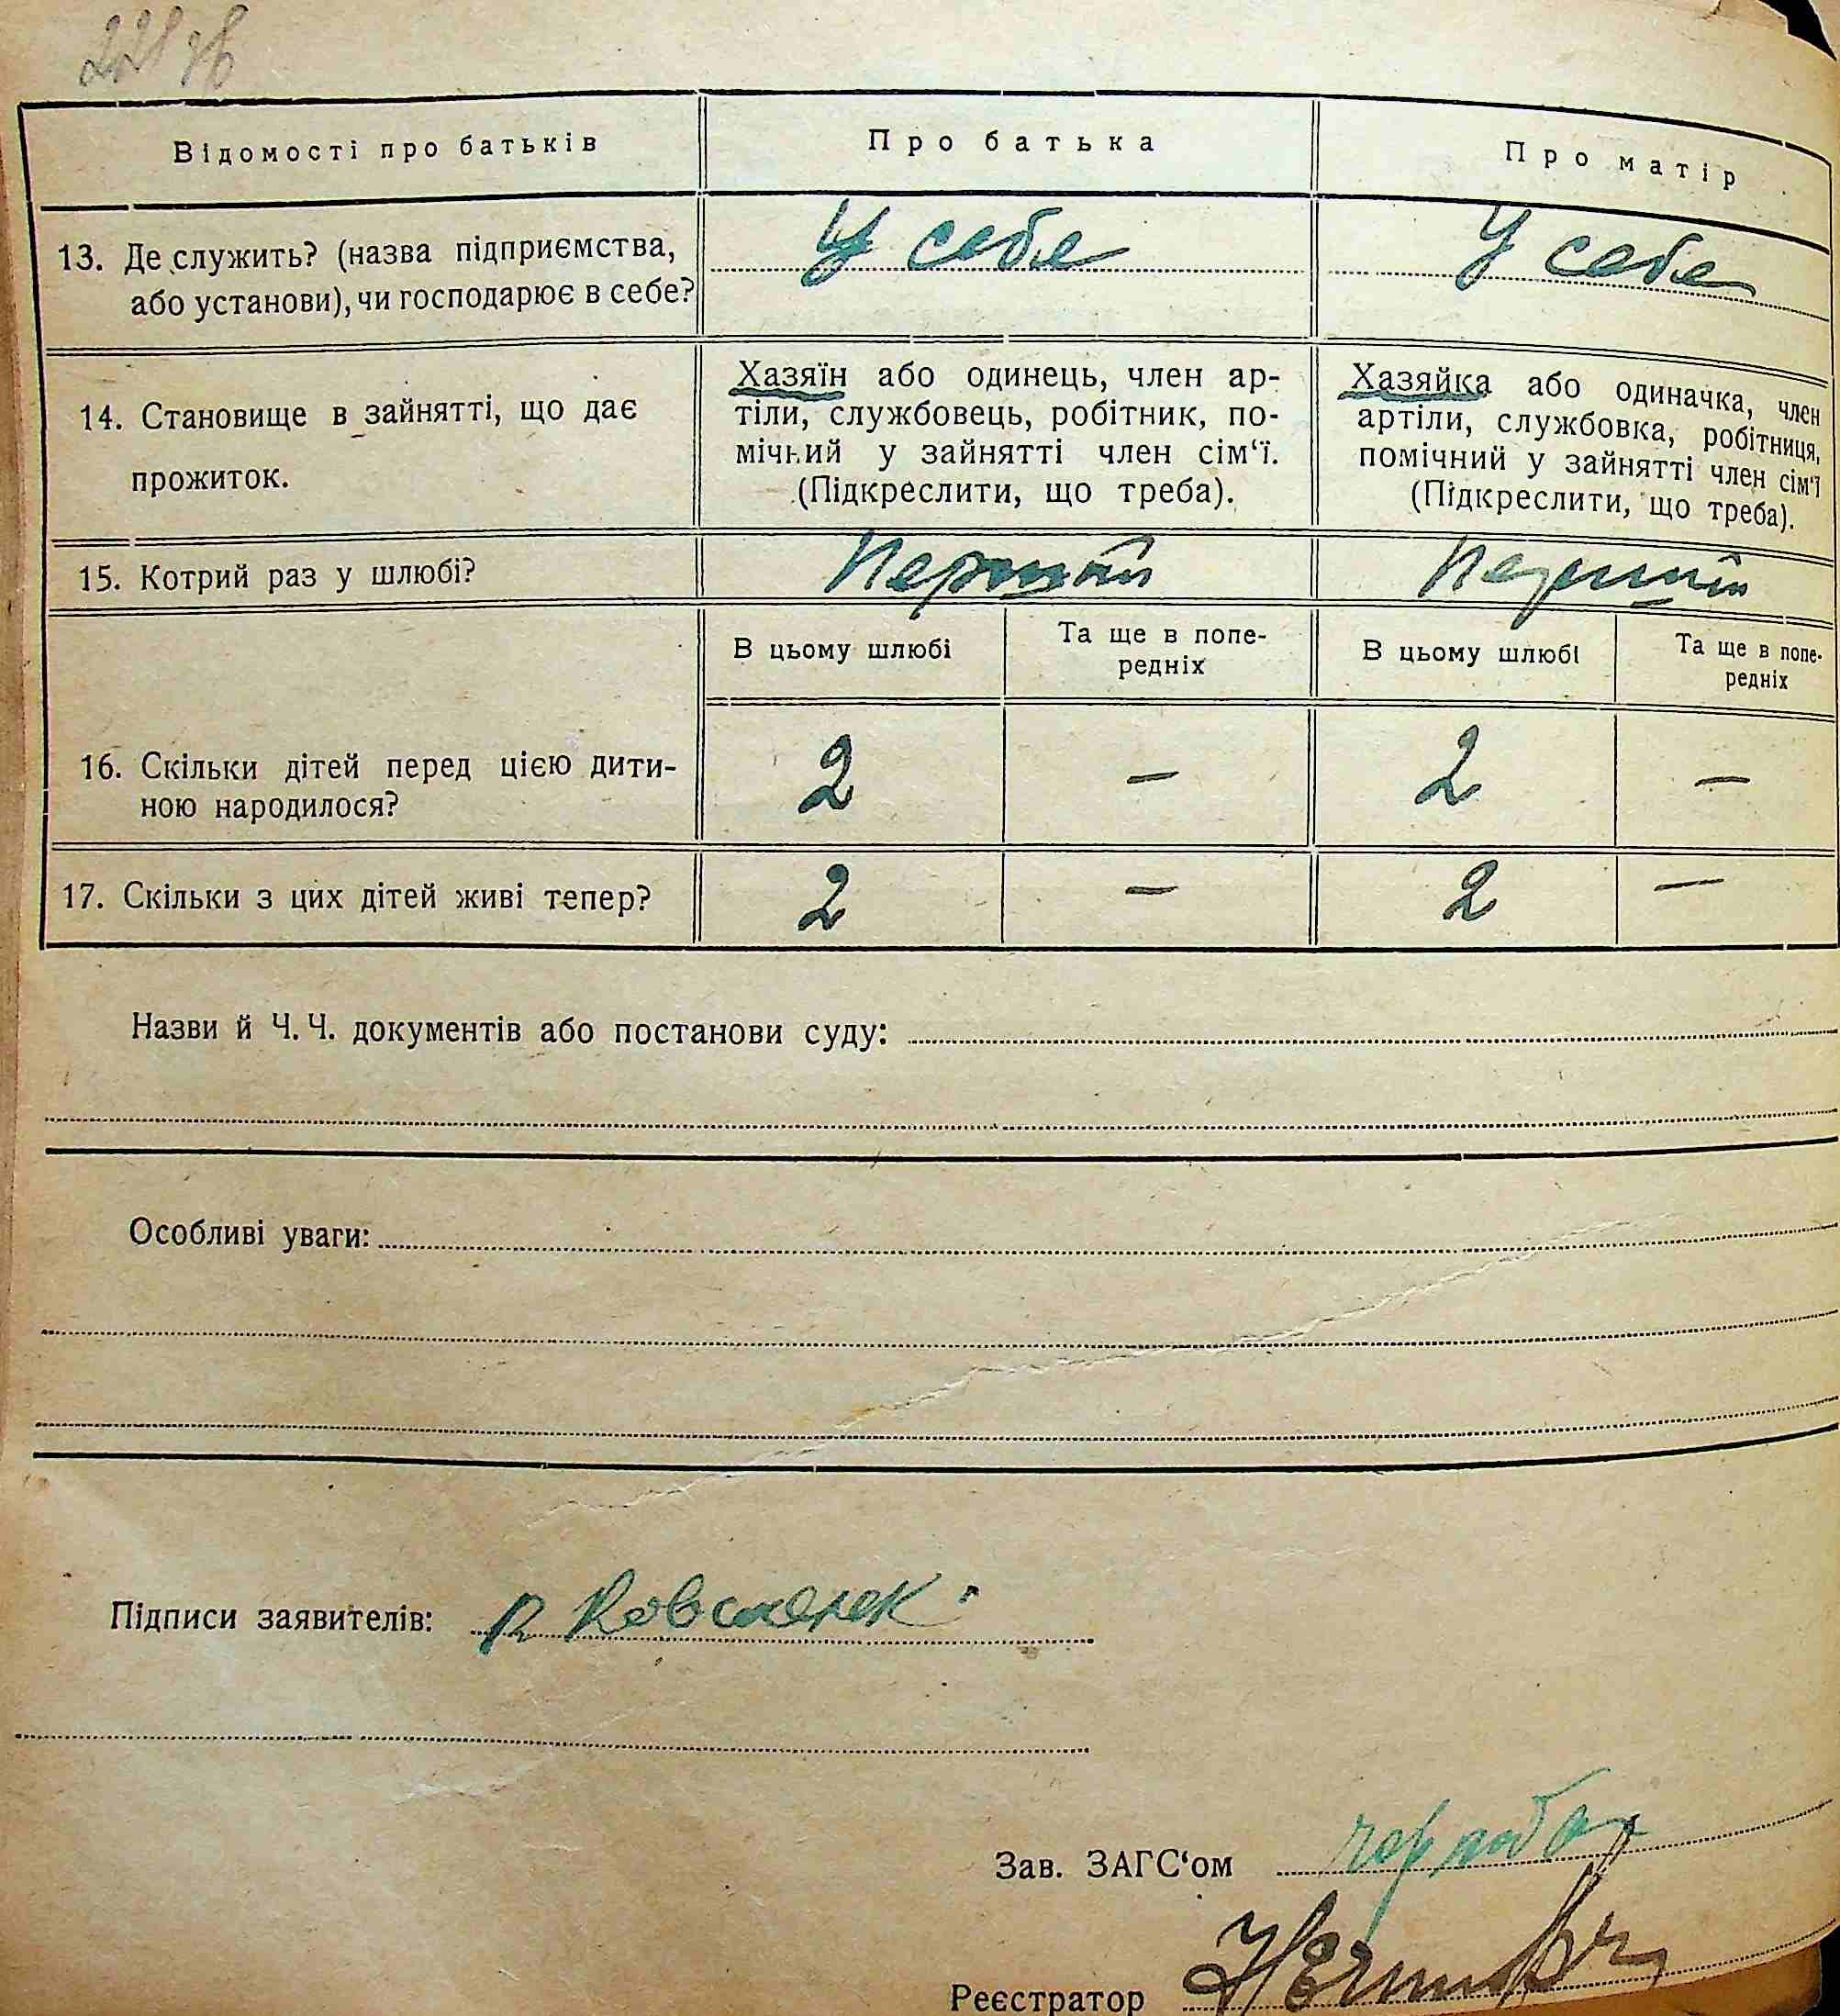 Відомості про батьків
Про батька
Про матір
13. Де служить? (назва підприємства,
або установи), чи господарює в себе?
У себе
У себе
14. Становище в зайнятті, що дає
прожиток.
Хазяїн або одинець, член ар-
тіли, службовець, робітник, по-
мічний у зайнятті член сім‘ї.
(Підкреслити, що треба).
Хазяйка або одиначка, член
артіли, службовка, робітниця,
помічний у зайнятті член сім‘ї
(Підкреслити, що треба).
15. Котрий раз у шлюбі?
Перший
Перший
В цьому шлюбі
Та ще в попе-
редніх
В цьому шлюбі
Та ще в попе-
редніх
16. Скільки дітей перед цією дити-
ною народилося?
2
—
2
—
17. Скільки з цих дітей живі тепер?
2
—
2
—
Назви й Ч. Ч. документів або постанови суду:
Особливі уваги:
Підписи заявителів:
Зав. ЗАГС‘ом
Реєстратор